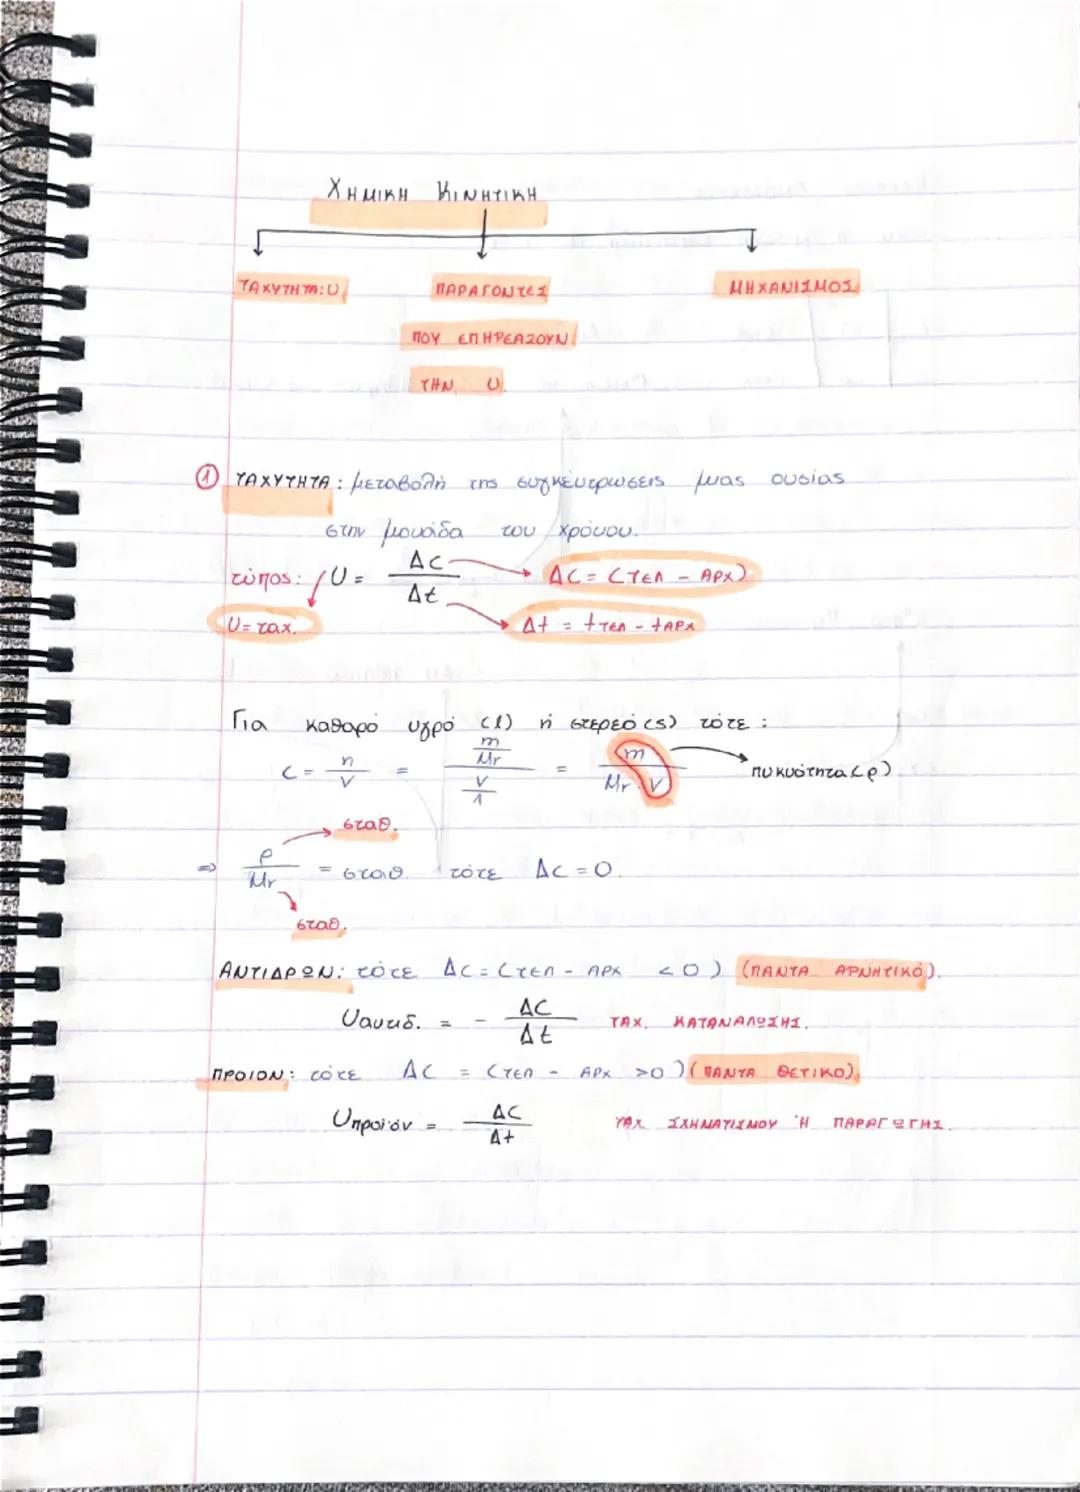 ΧΗΜΙΚΗ ΚΙΝΗΤΙΚΗ
ΤΑΧΥΤΗΤΑ: U
ΠΑΡΑΓΟΝΤΕΣ
ΜΗΧΑΝΙΣΜΟΣ
ΠΟΥ ΕΠΗΡΕΑΖΟΥΝ
ΤΗΝ U.
① ΤΑΧΥΤΗΤΑ: μεταβολή της συγκέντρωσεις μιας ουσίας
στην μονάδα του χρόνου.
τύπος: U = ΔC/Δt
ΔC = CΤΕΛ - CΑΡΧ
U = ταχ.
Δt = tΤΕΛ - tΑΡΧ
Για καθαρό υγρό (l) ή στερεό (s) τότε:
C = n/V = (m/Mr)/(V/1) = m/(Mr·V) πυκνότητα (ρ)
σταθ.
⇒ ρ/Mr = σταθ. τότε ΔC = 0.
σταθ.
ΑΝΤΙΔΡΩΝ: τότε ΔC = CΤΕΛ - ΑΡΧ < 0) (ΠΑΝΤΑ ΑΡΝΗΤΙΚΟ).
Uαντιδ. = - ΔC/Δt ΤΑΧ. ΚΑΤΑΝΑΛΩΣΗΣ.
ΠΡΟΙΟΝ: τότε ΔC = CΤΕΛ - ΑΡΧ >0) (ΠΑΝΤΑ ΘΕΤΙΚΟ)
Uπροϊόν = ΔC/Δt ΤΑΧ. ΣΧΗΜΑΤΙΣΜΟΥ Ή ΠΑΡΑΓΩΓΗΣ.